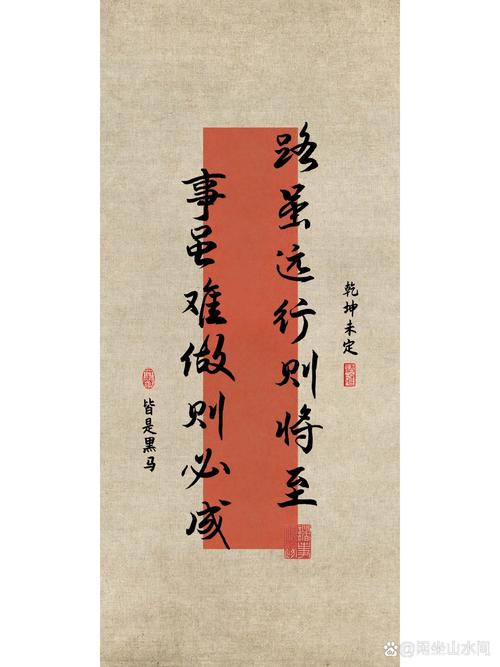 路虽远行则将至
事虽难做则必成
乾坤未定
皆是黑马
@闲坐山水间